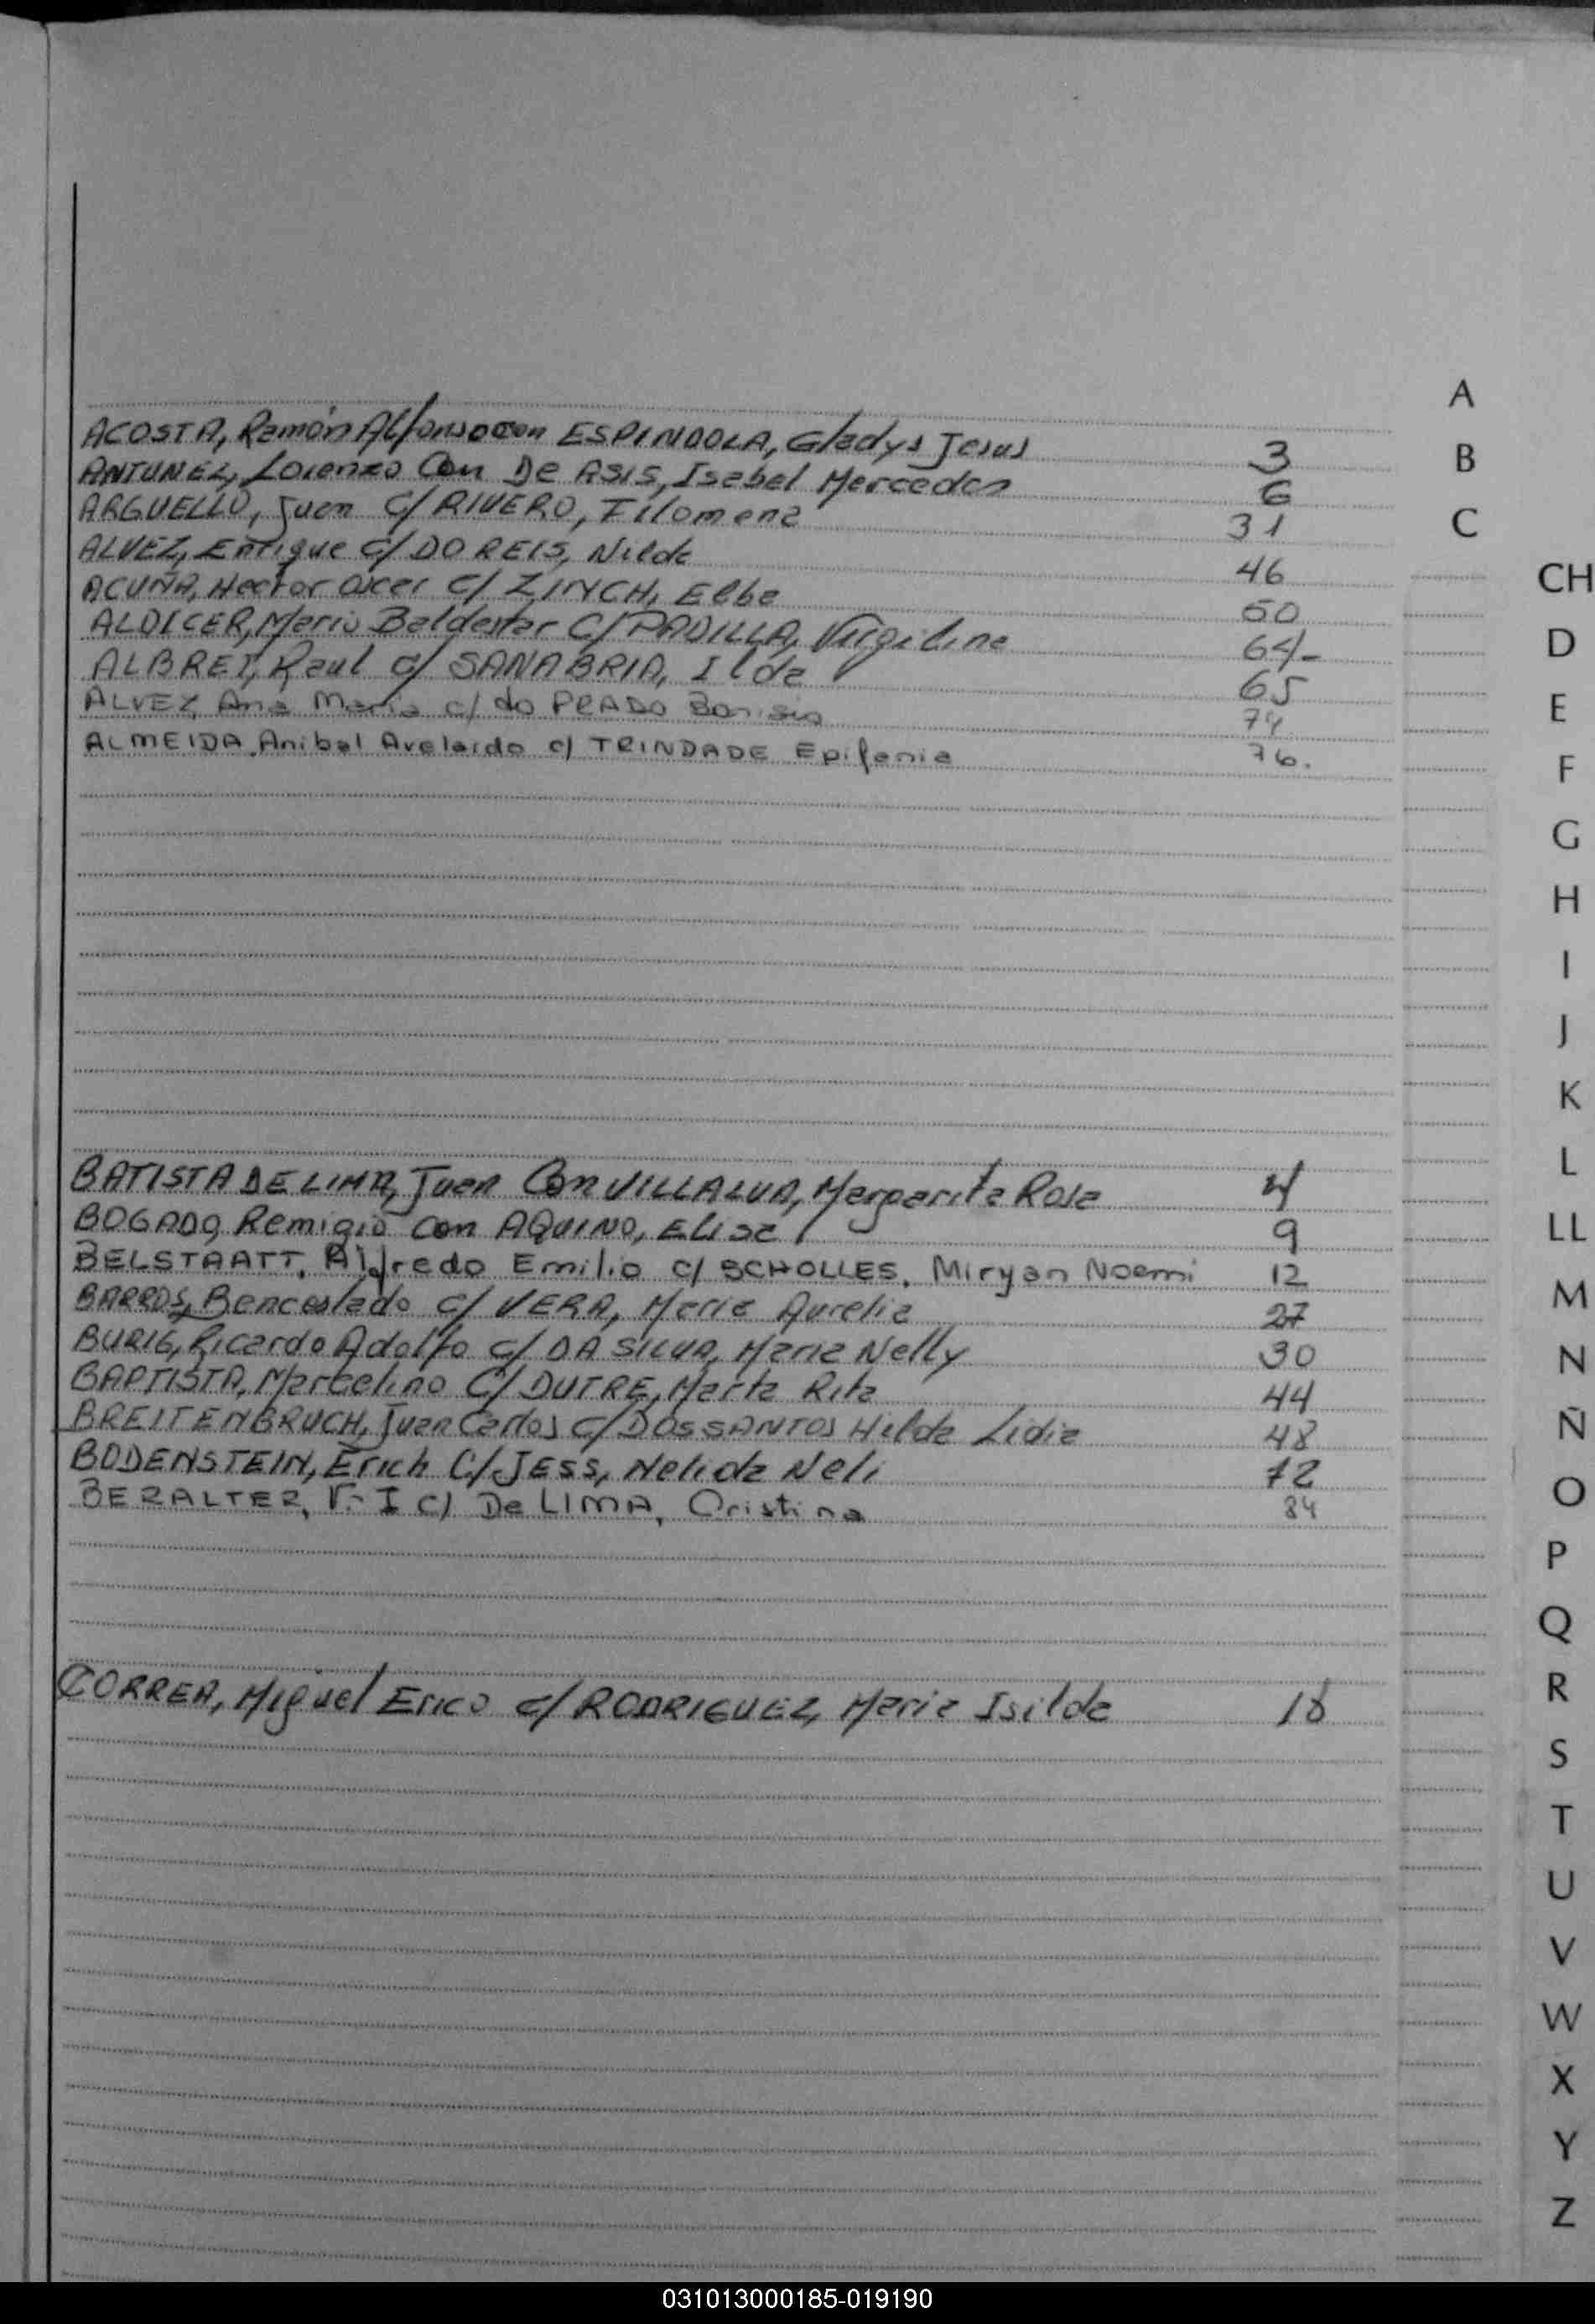 ACOSTA, Ramón Alfonso con ESPINDOLA, Gladys Jesus 3
ANTUNEZ, Lorenzo Con De ASIS, Isabel Mercedes 6
ARGUELLO, Juan C/ RIVERO, Filomena 31
ALVEZ, Enrique C/ DO REIS, Nilda 46
ACUÑA, Hector Oscar C/ ZINCH, Elba 50
ALDICER, Mario Baldester C/ PADILLA, Virgilina 64-
ALBRET, Raul c/ SANABRIA, Ilda 65
ALVEZ, Ana Maria c/ do PRADO 74
ALMEIDA, Anibal Avelardo c/ TRINDADE Epifania 76.
BATISTA DE LIMA, Juan Con VILLALVA, Margarita Rosa 4
BOGADO, Remigio con AQUINO, Elisa 9
BELSTAATT, Alfredo Emilio c/ SCHOLLES, Miryan Noemi 12
BARROS, Benceslado c/ VERA, Maria Aurelia 27
BURIG, Ricardo Adolfo c/ DA SILVA, Maria Nelly 30
BAPTISTA, Marcelino C/ DUTRE, Marta Rita 44
BREITENBRUCH, Juan Carlos C/ DOS SANTOS Hilda Lidia 48
BODENSTEIN, Erich C/ JESS, Nelida Neli 72
BERALTER, I c/ De LIMA, Cristina 84
CORREA, Miguel Erico c/ RODRIGUEZ, Maria Isilda 18
A
B
C
CH
D
E
F
G
H
I
J
K
L
LL
M
N
Ñ
O
P
Q
R
S
T
U
V
W
X
Y
Z
031013000185-019190